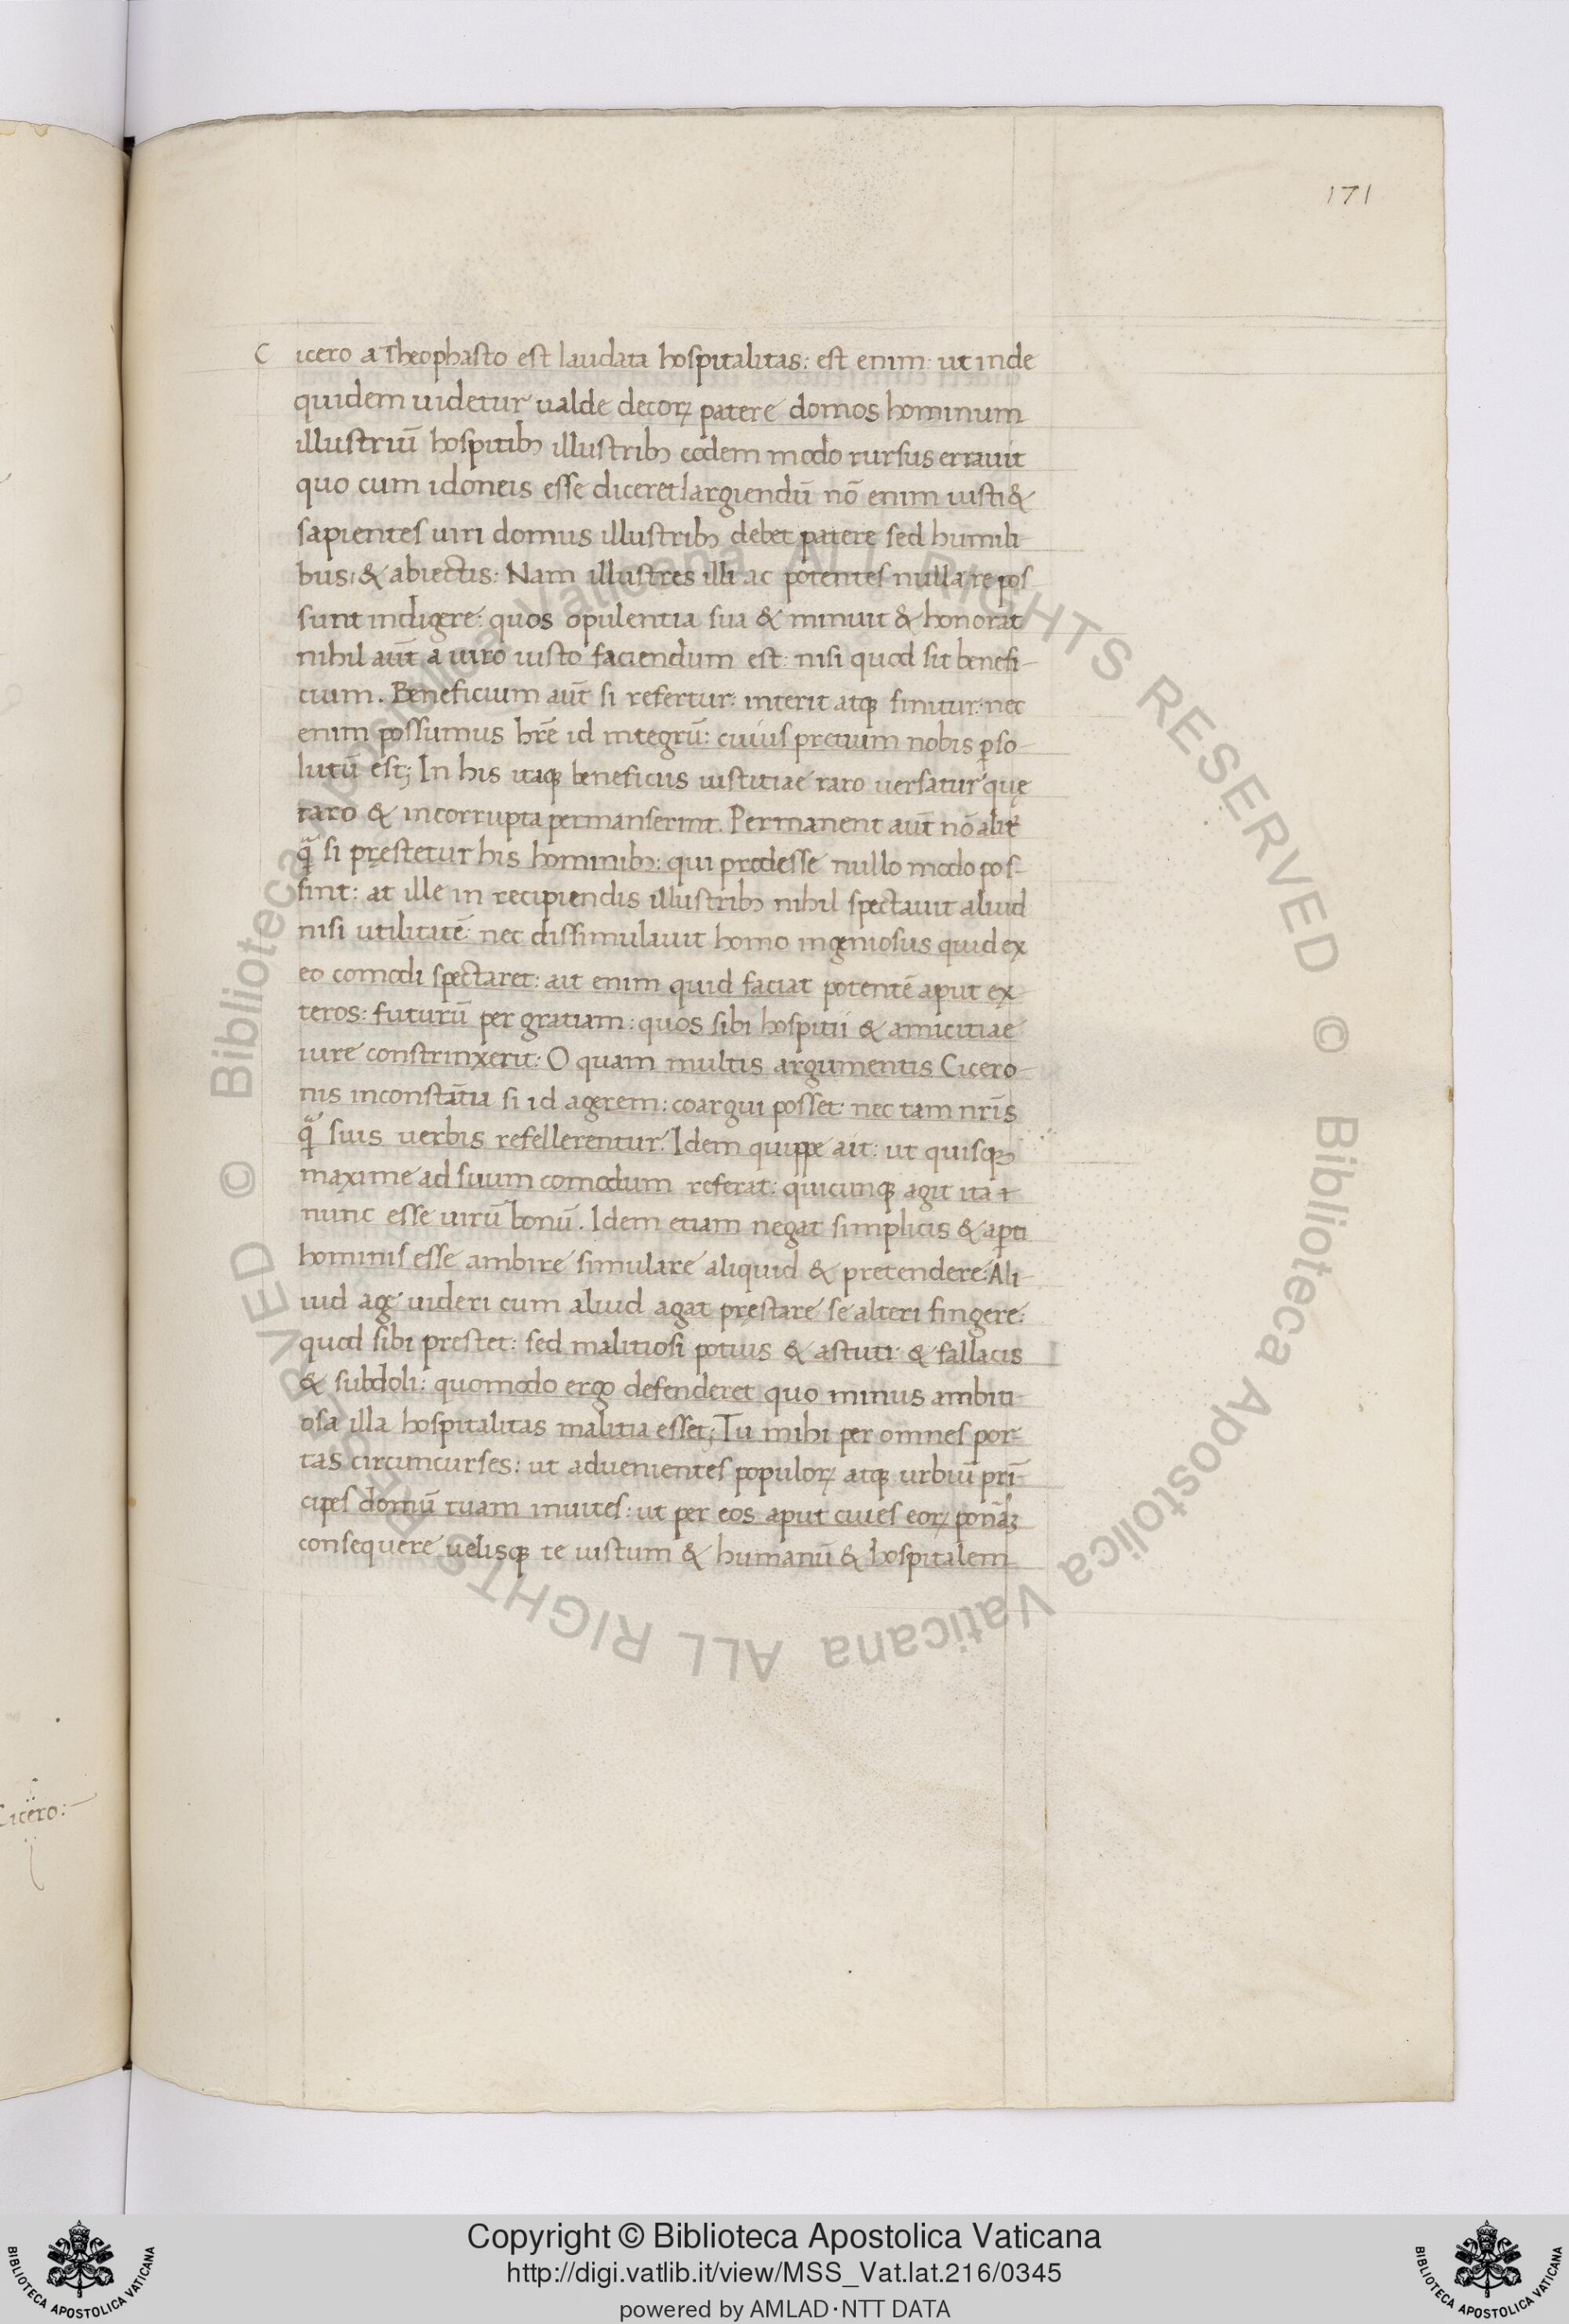 171
C icero a Theophasto est laudata hospitalitas: est enim: ut inde
quidem uidetur ualde decoꝝ patere domos hominum
illustriū hospitibꝫ illustribꝫ eodem modo rursus errauit
quo cum idoneis esse diceret largiendū nō enim iusti &
sapientes uiri domus illustribꝫ debet patere sed humili
bus: & abiectis: Nam illustres illi ac potentes nulla re pos
sunt indigere: quos opulentia sua & minuit & honorat
nihil aūt a uiro iusto faciendum est: nisi quod sit benefi-
cium. Beneficium aūt si refertur: interit atqꝫ finitur: nec
enim possumus hr̄e id integrū: cuius pretium nobis ꝑso-
lutū est; In his itaqꝫ beneficiis iustitiae raro uersatur quę
raro & incorrupta permanserint. Permanent aūt nō alit̄
ꝙ̄ si pręstetur his hominibꝫ: qui prodesse nullo modo pos-
sint: at ille in recipiendis illustribꝫ nihil spectauit aliud
nisi utilitatē: nec dissimulauit homo ingeniosus quid ex
eo comodi spectaret: ait enim quid faciat potentē aput ex
teros: futurū per gratiam: quos sibi hospitii & amicitiae
iure constrinxerit: O quam multis argumentis Cicero-
nis inconstātia si id agerem: coargui posset: nec tam nr̄is
ꝙ̄ suis uerbis refellerentur. Idem quippe ait: ut quisqꝫ
maxime ad suum comodum referat: quicunqꝫ agit ita t
nunc esse uirū bonū. Idem etiam negat simplicis & aꝑti
hominis esse ambire simulare aliquid & pretendere: Ali
iud age uideri cum aliud agat pręstare se alteri fingere:
quod sibi prestet: sed malitiosi potius & astuti & fallacis
& subdoli: quomodo ergo defenderet quo minus ambiti-
osa illa hospitalitas malitia esset; Tu mihi per omnes por-
tas circumcurses: ut aduenientes populoꝝ atqꝫ urbiū prī-
cipes domū tuam inuites: ut per eos aput ciues eoꝝ
consequere uelisqꝫ te iustum & humanū & hospitalem
Cicero:
© Biblioteca Apostolica Vaticana ALL RIGHTS RESERVED © Biblioteca Apostolica Vaticana ALL RIGHTS RESERVED
Copyright © Biblioteca Apostolica Vaticana
http://digi.vatlib.it/view/MSS_Vat.lat.216/0345
powered by AMLAD·NTT DATA
BIBLIOTECA APOSTOLICA VATICANA
BIBLIOTECA APOSTOLICA VATICANA